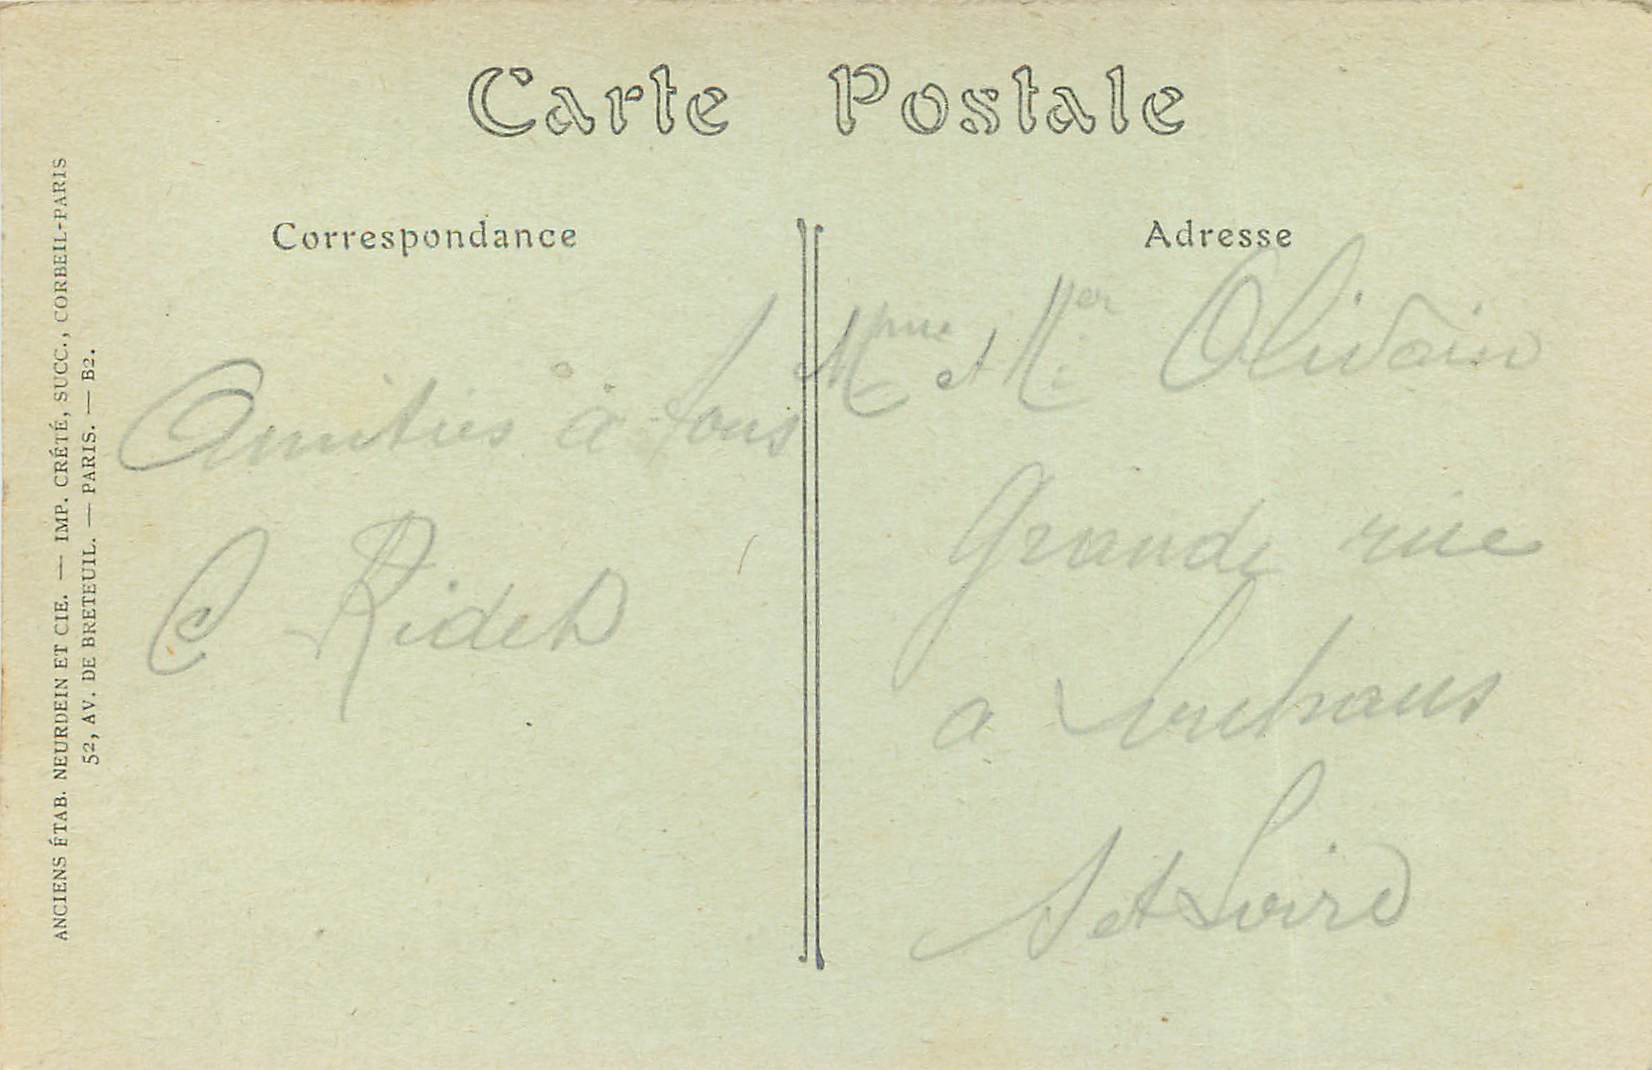 Carte Postale
Correspondance
Amitiés à tous
C
Adresse
Mme et Mer Olivain
Grande rue
a Louhans
S et Loire
ANCIENS ÉTAB. NEURDEIN ET CIE. — IMP. CRÉTÉ, SUCC., CORBEIL-PARIS
52, AV. DE BRETEUIL. — PARIS. — B2.